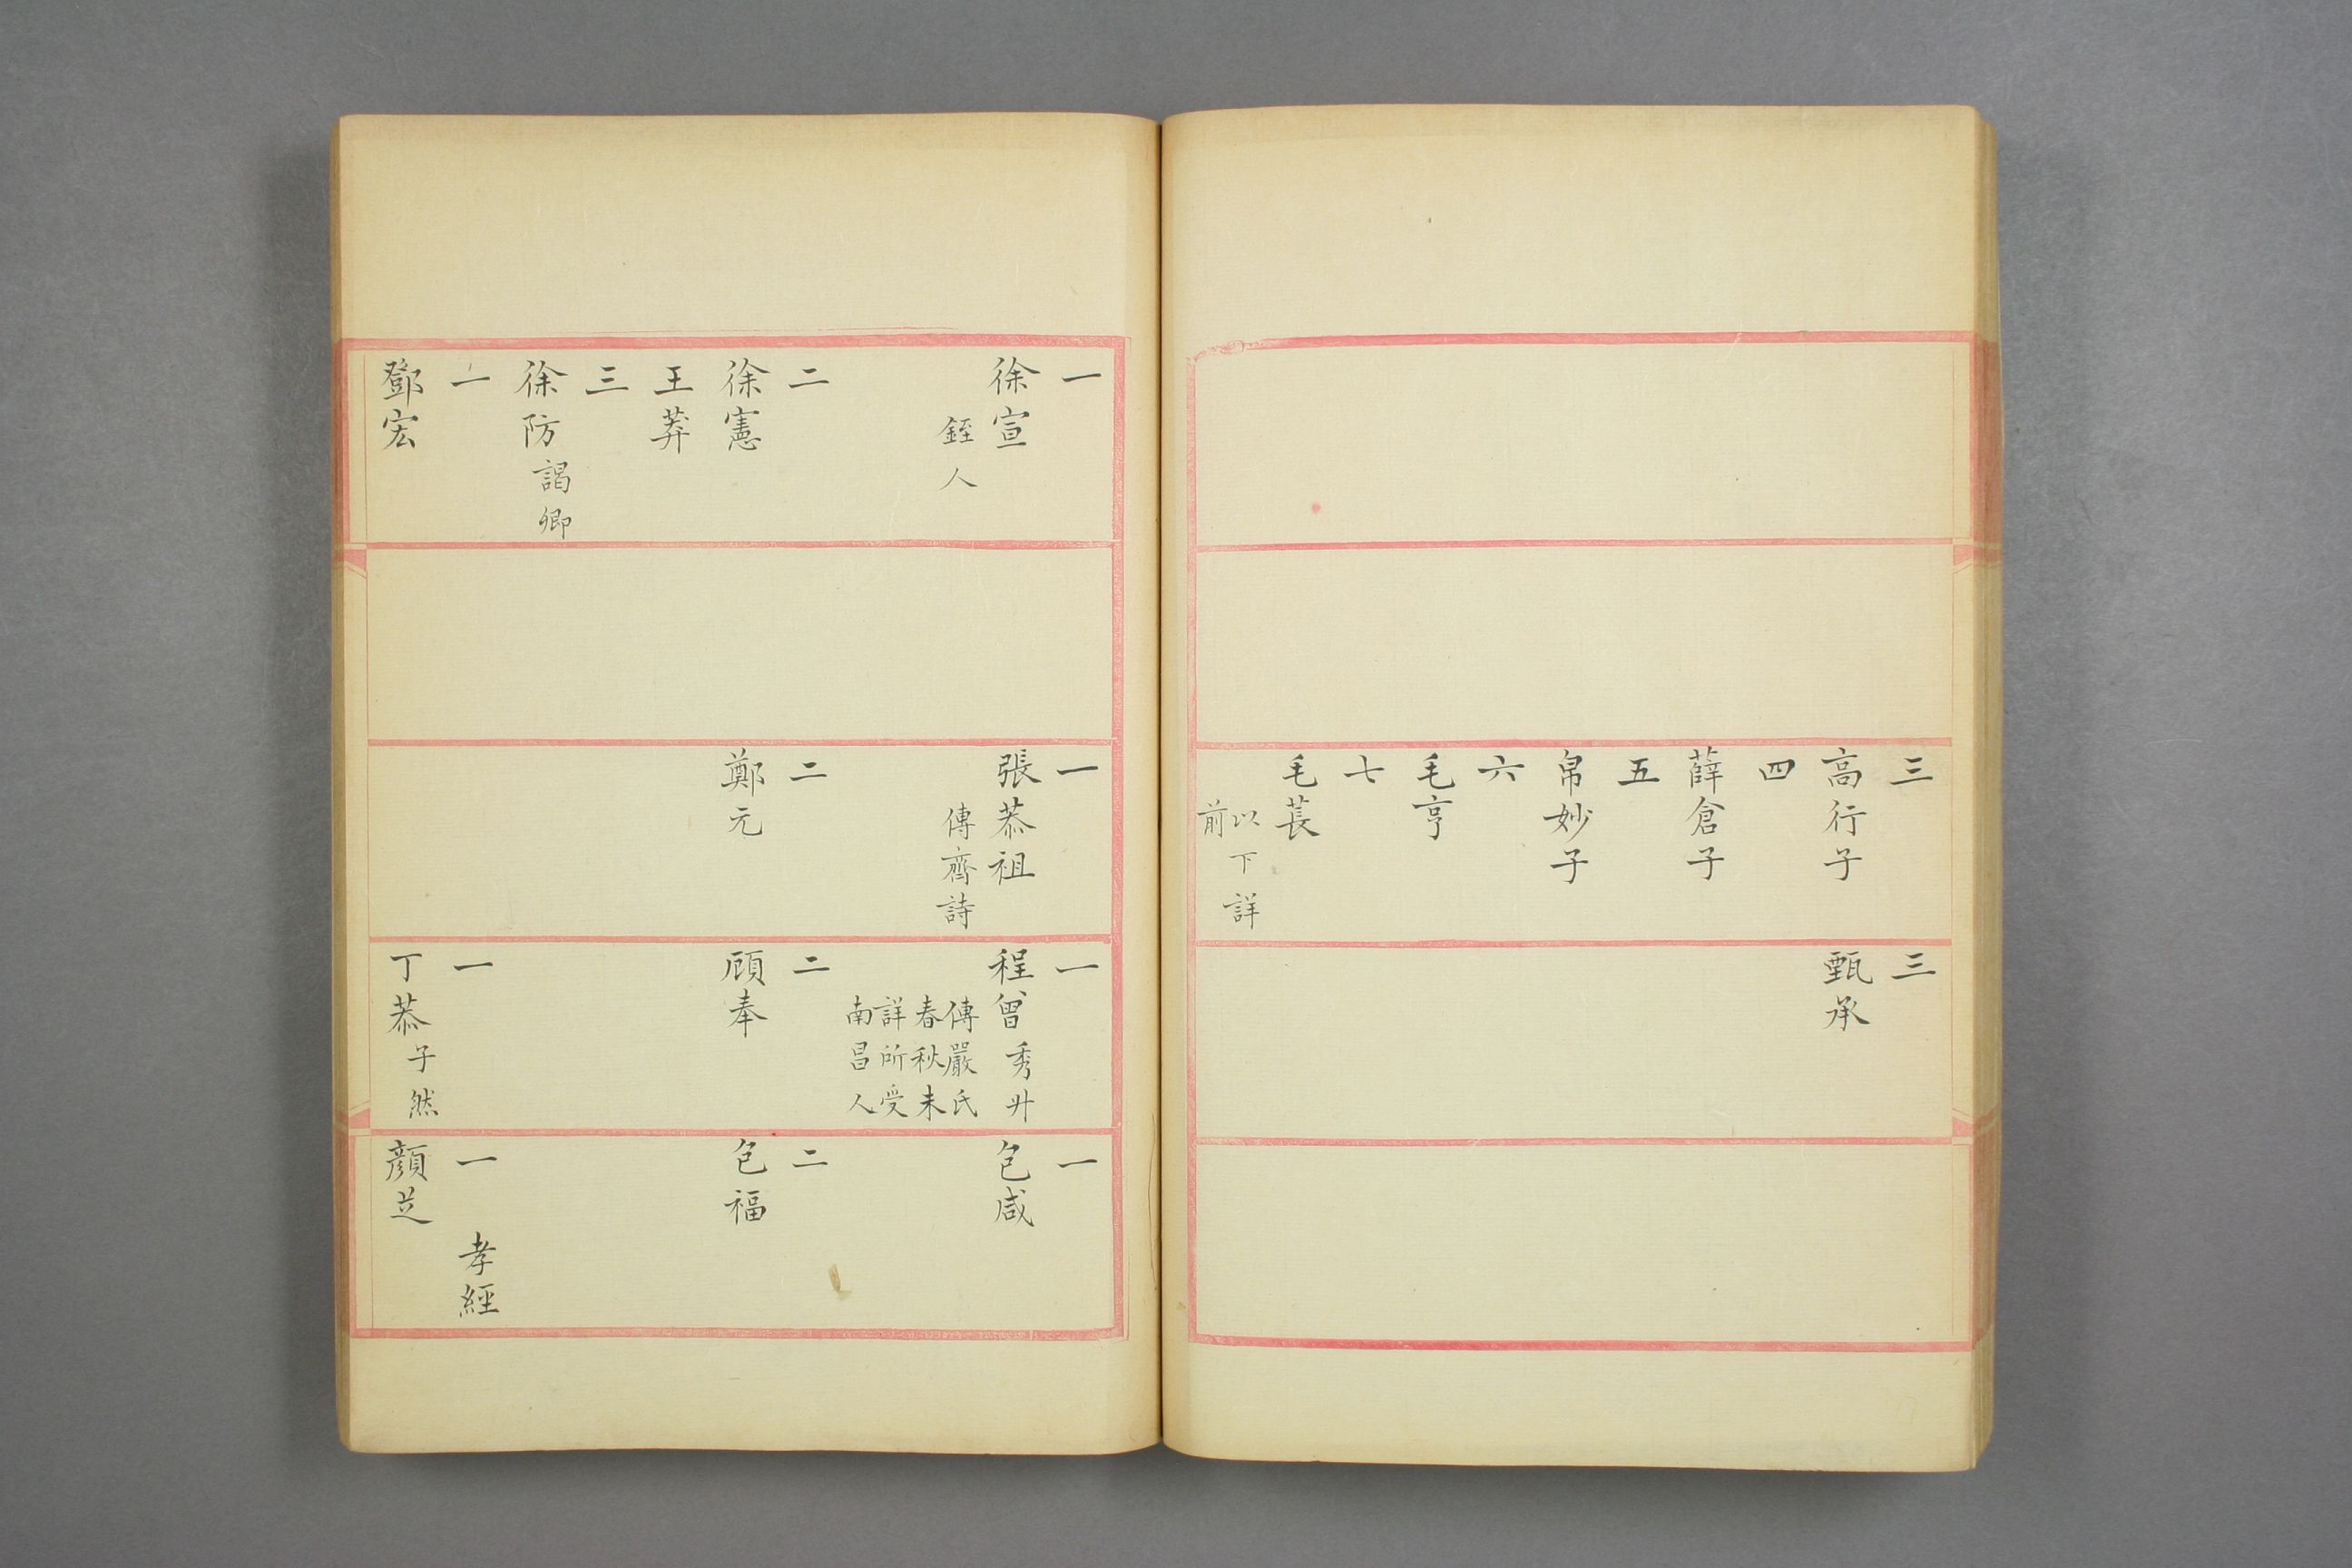 三
高行子
四
薛倉子
五
帛妙子
六
毛亨
七
毛萇
以下詳
前
三
甄承
一
徐宣
銍人
二
徐憲
王莽
三
徐防謁卿
一
鄧宏
一
張恭祖
傳齊詩
二
鄭元
一
程曾秀升
傳嚴氏
春秋未
詳所受
南昌人
二
顧奉
一
丁恭子然
一
包咸
二
包福
一
孝經
顏芝